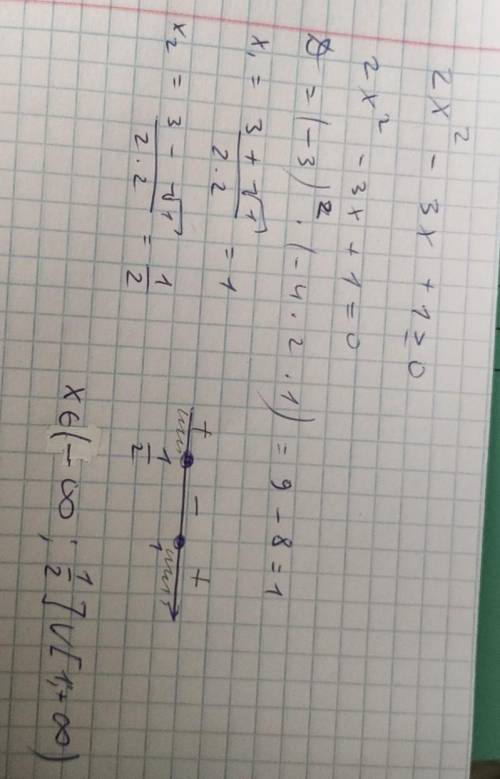 2x² - 3x + 1 ≥ 0
2x² - 3x + 1 = 0
D = (-3)² · (-4 · 2 · 1) = 9 - 8 = 1
x₁ = (3 + √1)/(2 · 2) = 1
x₂ = (3 - √1)/(2 · 2) = 1/2
+ - +
1/2 1
x ∈ (-∞; 1/2] ∪ [1; +∞)